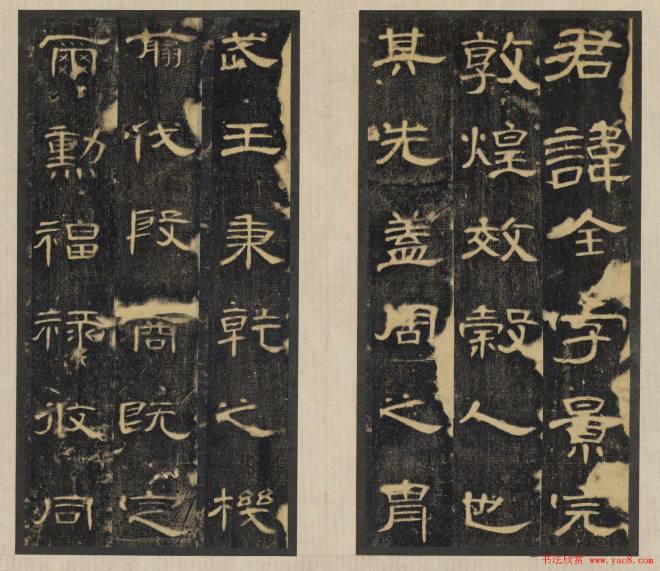 君諱全字景完
敦煌效穀人也
其先蓋周之胄
武王秉乾之機
翦伐殷商既定
爾勳福祿攸同
书法欣赏 www.yac8.com